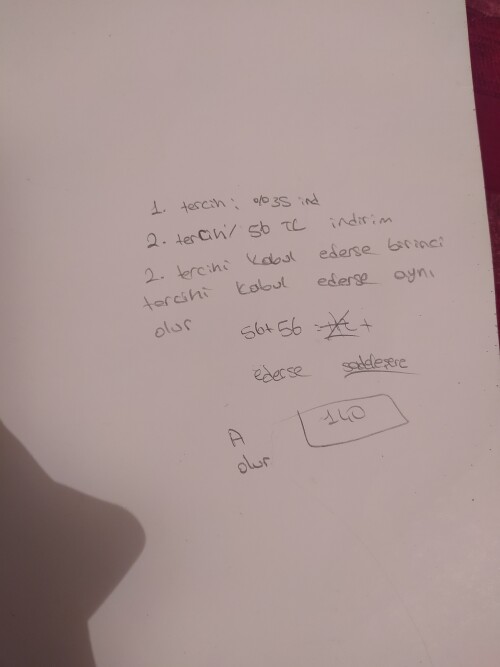 1. tercih: %35 ind
2. tercih/ 56 TL indirim
2. tercihi kabul ederse birinci
tercihi kabul ederse aynı
olur
56+56 = +
ederse
A
olur
140